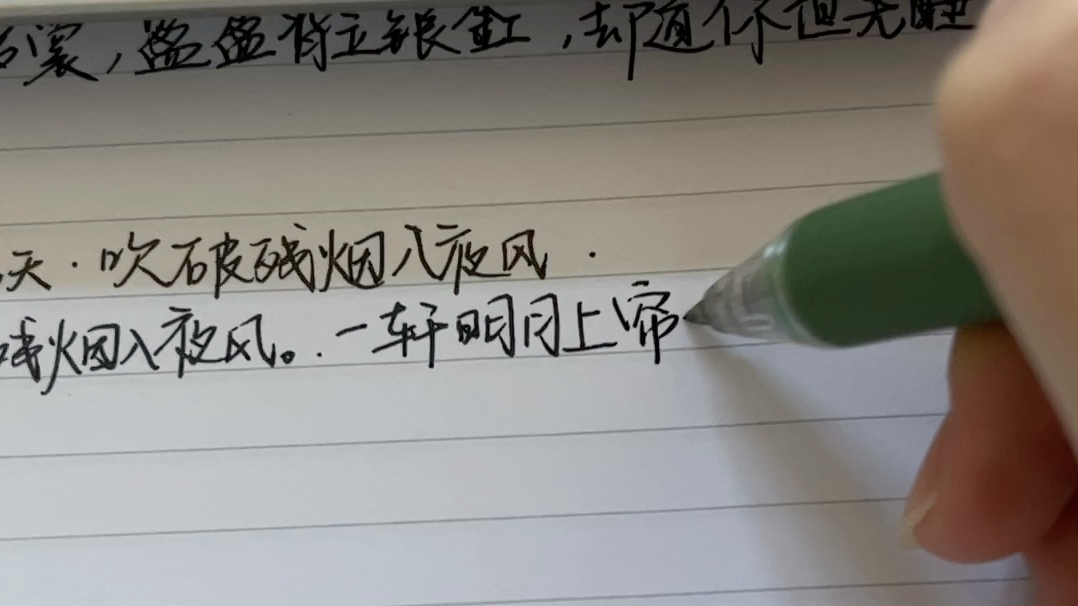 裳，盈盈背立银釭，却道你但先睡
天．吹破残烟入夜风．
残烟入夜风。．一轩明月上帘